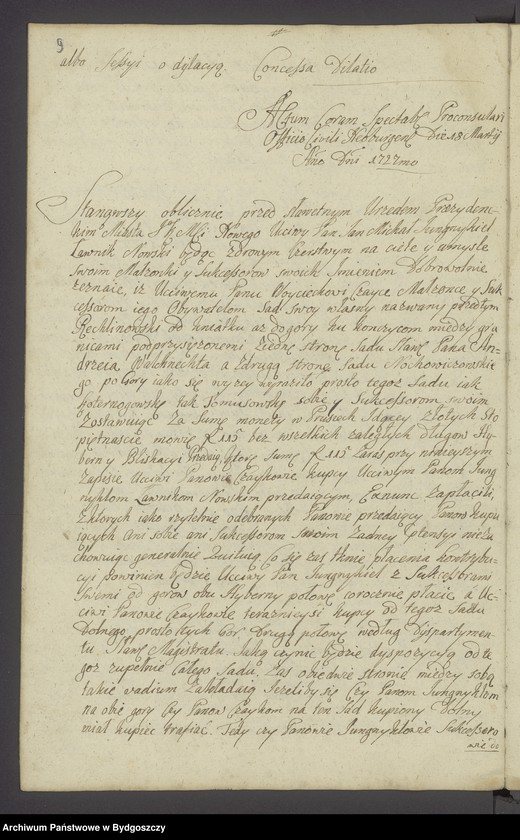 9
albo Sessyi o dylacyą. Concessa Dilatio
Actum Coram Spectabi Proconsulari
Officio Civili Neoburgen Die 18 Martij
Ano Dni 1727mo
Stanąwszy oblicznie przed Sławetnym Urzędem Prezyden-
kim Miasta J K Mci Nowego Uciwy Pan Jan Michał Jungnykiel
Ławnik Nowski będąc zdrowym czerstwym na ciele y umysle
swoim Małżonki y Sukcessorow swoich Imieniem Dobrowolnie
zeznaie, iz Uczciwemu Panu Woyciechowi Czayce Małżonce y Suk
cessorom iego Obywatelom Sad swoy własny nazwany przedtym
Rechlinowski od kniatku az dogory ku konczycom między gra
nicami podprzysiężonemi ziednę stronę Sadu Sławe Pana An-
drzeia Walchnechta a zdrugą stronę Sadu Nochowiczowskie
go połgory iako się wyżey wyraziło prosto tegoż Sadu iak
Koternogowskę tak Tomusowskę sobie y Sukcessorom swoim
Zostawuiąc Za Sumę monety w Prusiech Idącey Złotych Sto
piętnascie mowię f 115 bez wszelkich zaległych długow Hy-
berny Blikacyi Przeszłey, ktorę Sumę f 115 zaras przy ninieyszym
zapisie Ucciwi Panowie Czaykowie kupcy Ucciwym Panom Jung
nyklom Ławnikom Nowskim przedaiącym, Exnunc Zapłacili,
Zktorych iako rzytelnie odebranych Panowie przedaiący Panow kupu
iących ani sobie ani Sukcessorom Swoim Zadney ptensyi niezo
chowuiąc generalnie kwituią Co się zas tknie płacenia kontrybu-
cyi powinien będzie Ucciwy Pan Jungnykiel z Sukcessorami
swemi od gorow obu Hyberny połowę corocznie płacic a Uc-
ciwi Panowie Czaykowie teraznieyszi kupcy od tegoz Sadu
Dolnego, prosto tych Gor, Drugą połowę według Dyspartymen-
tu Sławe Magistratu Jaką czynic będzie dyspozycyą od te
goz zupełnie całego Sadu. Zas obiedwie stronie między sobą
takie wadium Zakładaią Jezeliby się czy Panom Jungnyklom
na obie gory czy Panow Czaykom na ten Sad kupiony Dolny
miał kupiec trafiac. Tedy czy Panowie Jungnyklowie Sukcessoro
wie ic
Archiwum Państwowe w Bydgoszczy